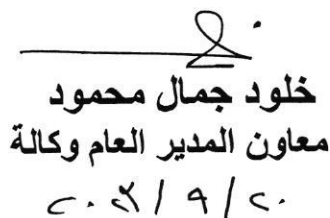 خلود جمال محمود
معاون المدير العام وكالة
٢٠٢٣ / ٩ / ٢٠